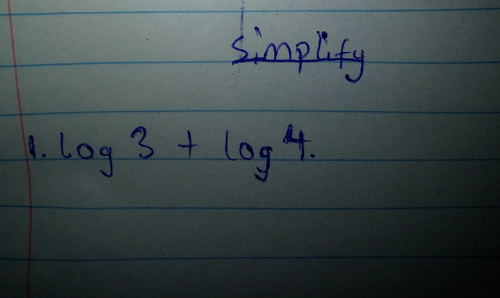 Simplify
1. log 3 + log 4.